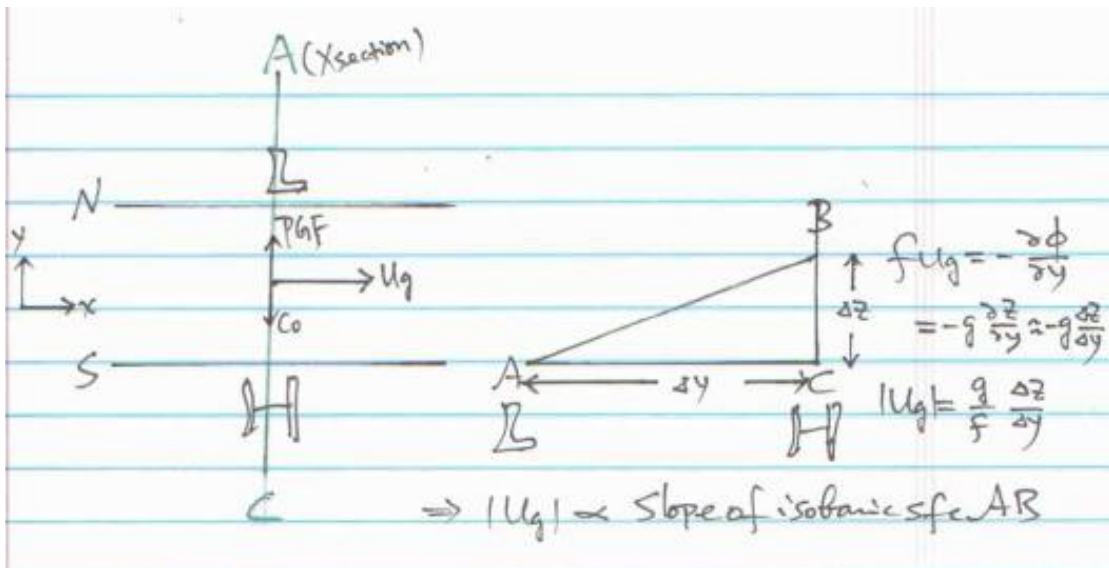 A (Xsection)
L
N
PGF
y
Ug
x
Co
S
H
C
B
ΔZ
A
Δy
C
L
H
fUg = - ∂ϕ/∂y
= -g ∂Z/∂y ≈ -g ΔZ/Δy
|Ug| = g/f ΔZ/Δy
⇒ |Ug| ∝ Slope of isobaric sfc AB